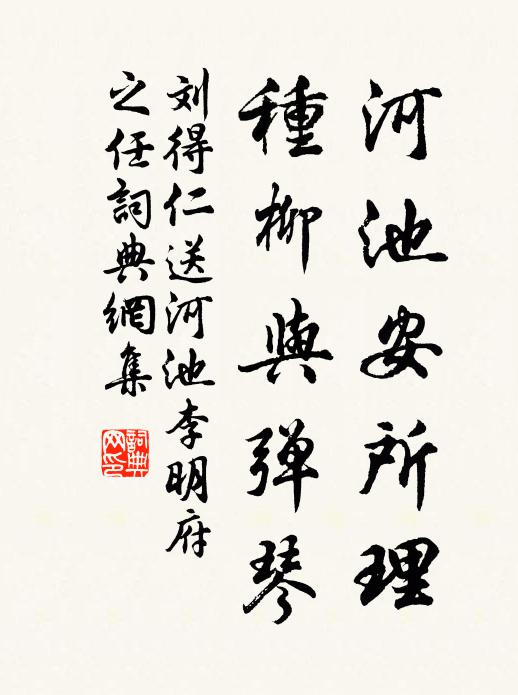 河池安所理
種柳與弹琴
刘得仁送河池李明府
之任詞典網集
詞典
网印